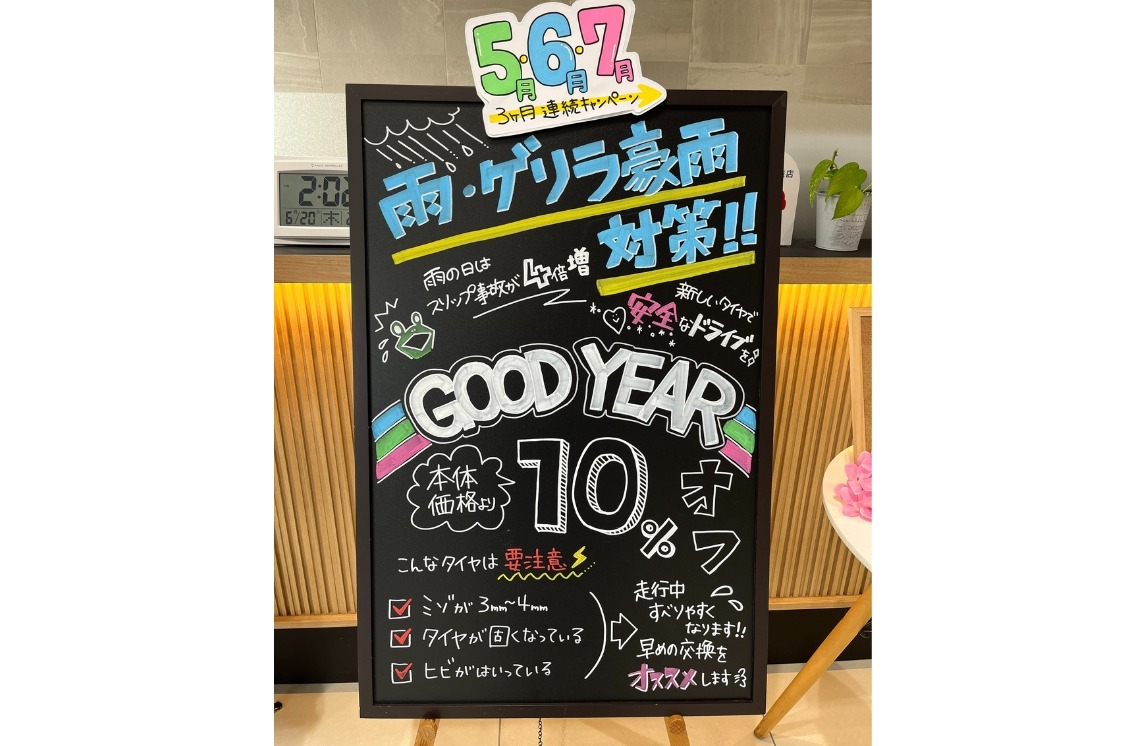 5月・6月・7月
3ヶ月連続キャンペーン
雨・ゲリラ豪雨
対策!!
雨の日は
スリップ事故が4倍増
新しいタイヤで
安全なドライブを
GOOD YEAR
本体
価格より
10%
オフ
こんなタイヤは要注意
ミゾが3mm~4mm
タイヤが固くなっている
ヒビがはいっている
走行中
すべりやすく
なります!!
早めの交換を
オススメします
6/20 木
店